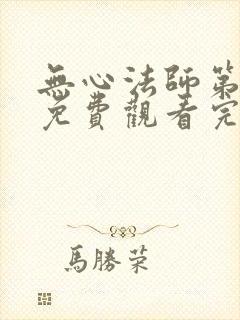 無心法師第
免費觀看完
馬勝荣